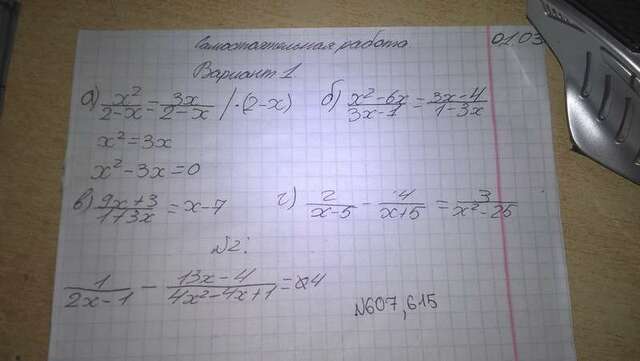 Самостоятельная работа 01.03
Вариант 1
а) x²/(2-x) = 3x/(2-x) / ·(2-x) б) (x²-6x)/(3x-7) = (3x-4)/(1-3x)
x² = 3x
x² - 3x = 0
в) (9x+3)/(1+3x) = x-7 г) 2/(x-5) - 4/(x+5) = 3/(x²-25)
N2:
1/(2x-1) - (13x-4)/(4x²-4x+1) = 4
N607,615